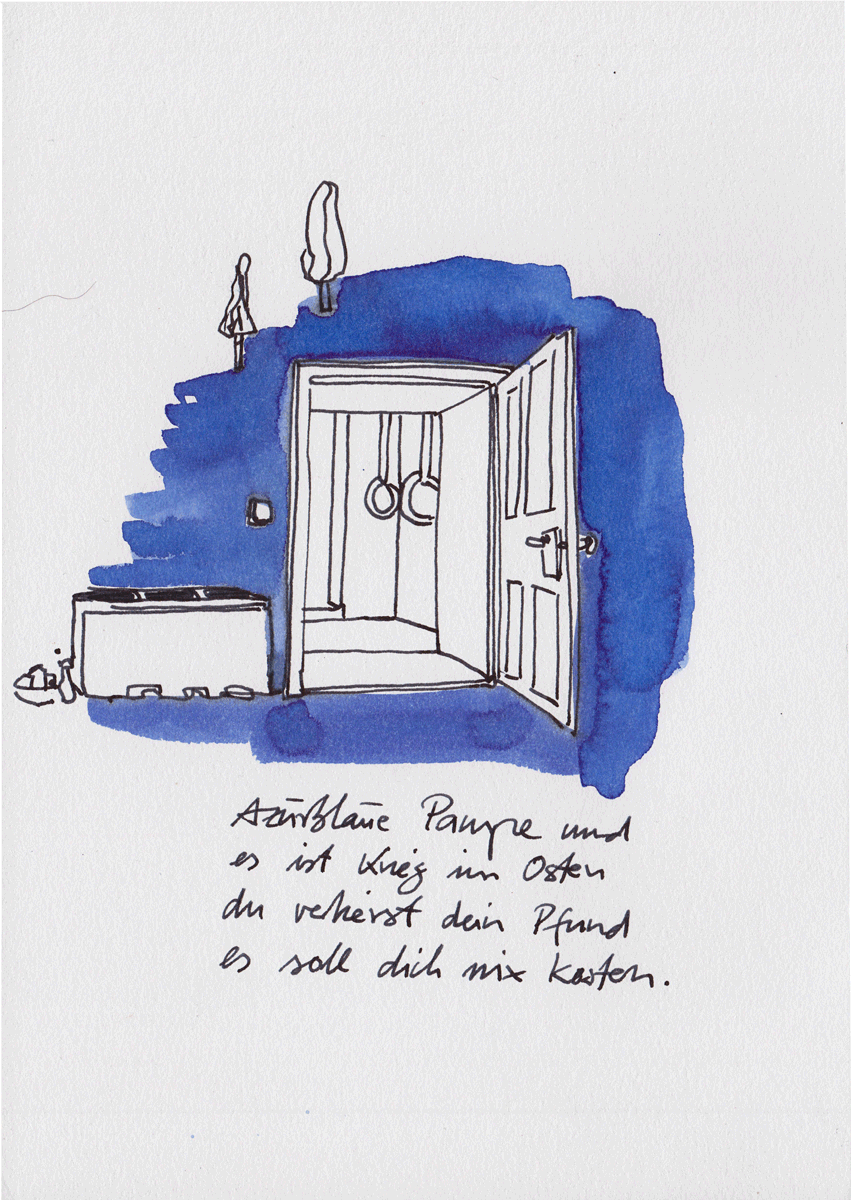 Azurblaue Pampe und
es ist Krieg im Osten
du verlierst dein Pfund
es soll dich nix kosten.